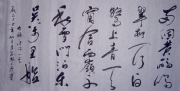 两个黄鹂鸣
翠柳一行白
鹭上青天
窗含西岭千
秋雪门泊东
吴万里船